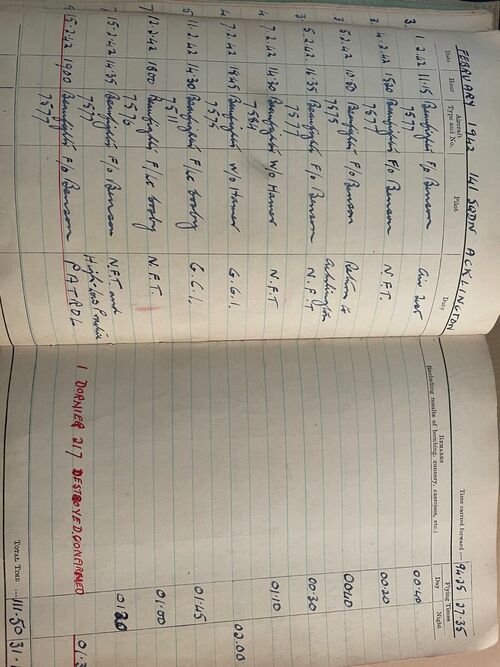 FEBRUARY 1942 141 SQDN ACKLINGTON
Time carried forward:— 94.25 27.35
Date Hour Aircraft Type and No. Pilot Duty
REMARKS
(including results of bombing, gunnery, exercises, etc.)
Flying Times
Day Night
1.2.42 11:15 Beaufighter F/O Benson Air Test 00:40
7577
4.2.42 1520 Beaufighter F/O Benson N.F.T. 00:20
7577
5.2.42 10:50 Beaufighter F/O Benson Return to 00:40
Acklington
5.2.42 14.35 Beaufighter F/O Benson N.F.T 00:30
7577
7.2.42 14:30 Beaufighter W/O Hamer N.F.T 01:10
7584
7.2.42 1945 Beaufighter W/O Hamer G.G.I. 02.00
7575
11.2.42 14:30 Beaufighter G.C.I. 01:45
7511
12.2.42 1500 Beaufighter N.F.T. 01:00
7570
15.2.42 14:35 Beaufighter F/O Benson N.F.T. and 01:20
7577
15.2.42 1900 Beaufighter F/O Benson PATROL 1 DORNIER 217 DESTROYED. CONFIRMED
7577
TOTAL TIME ... 111.50 31.